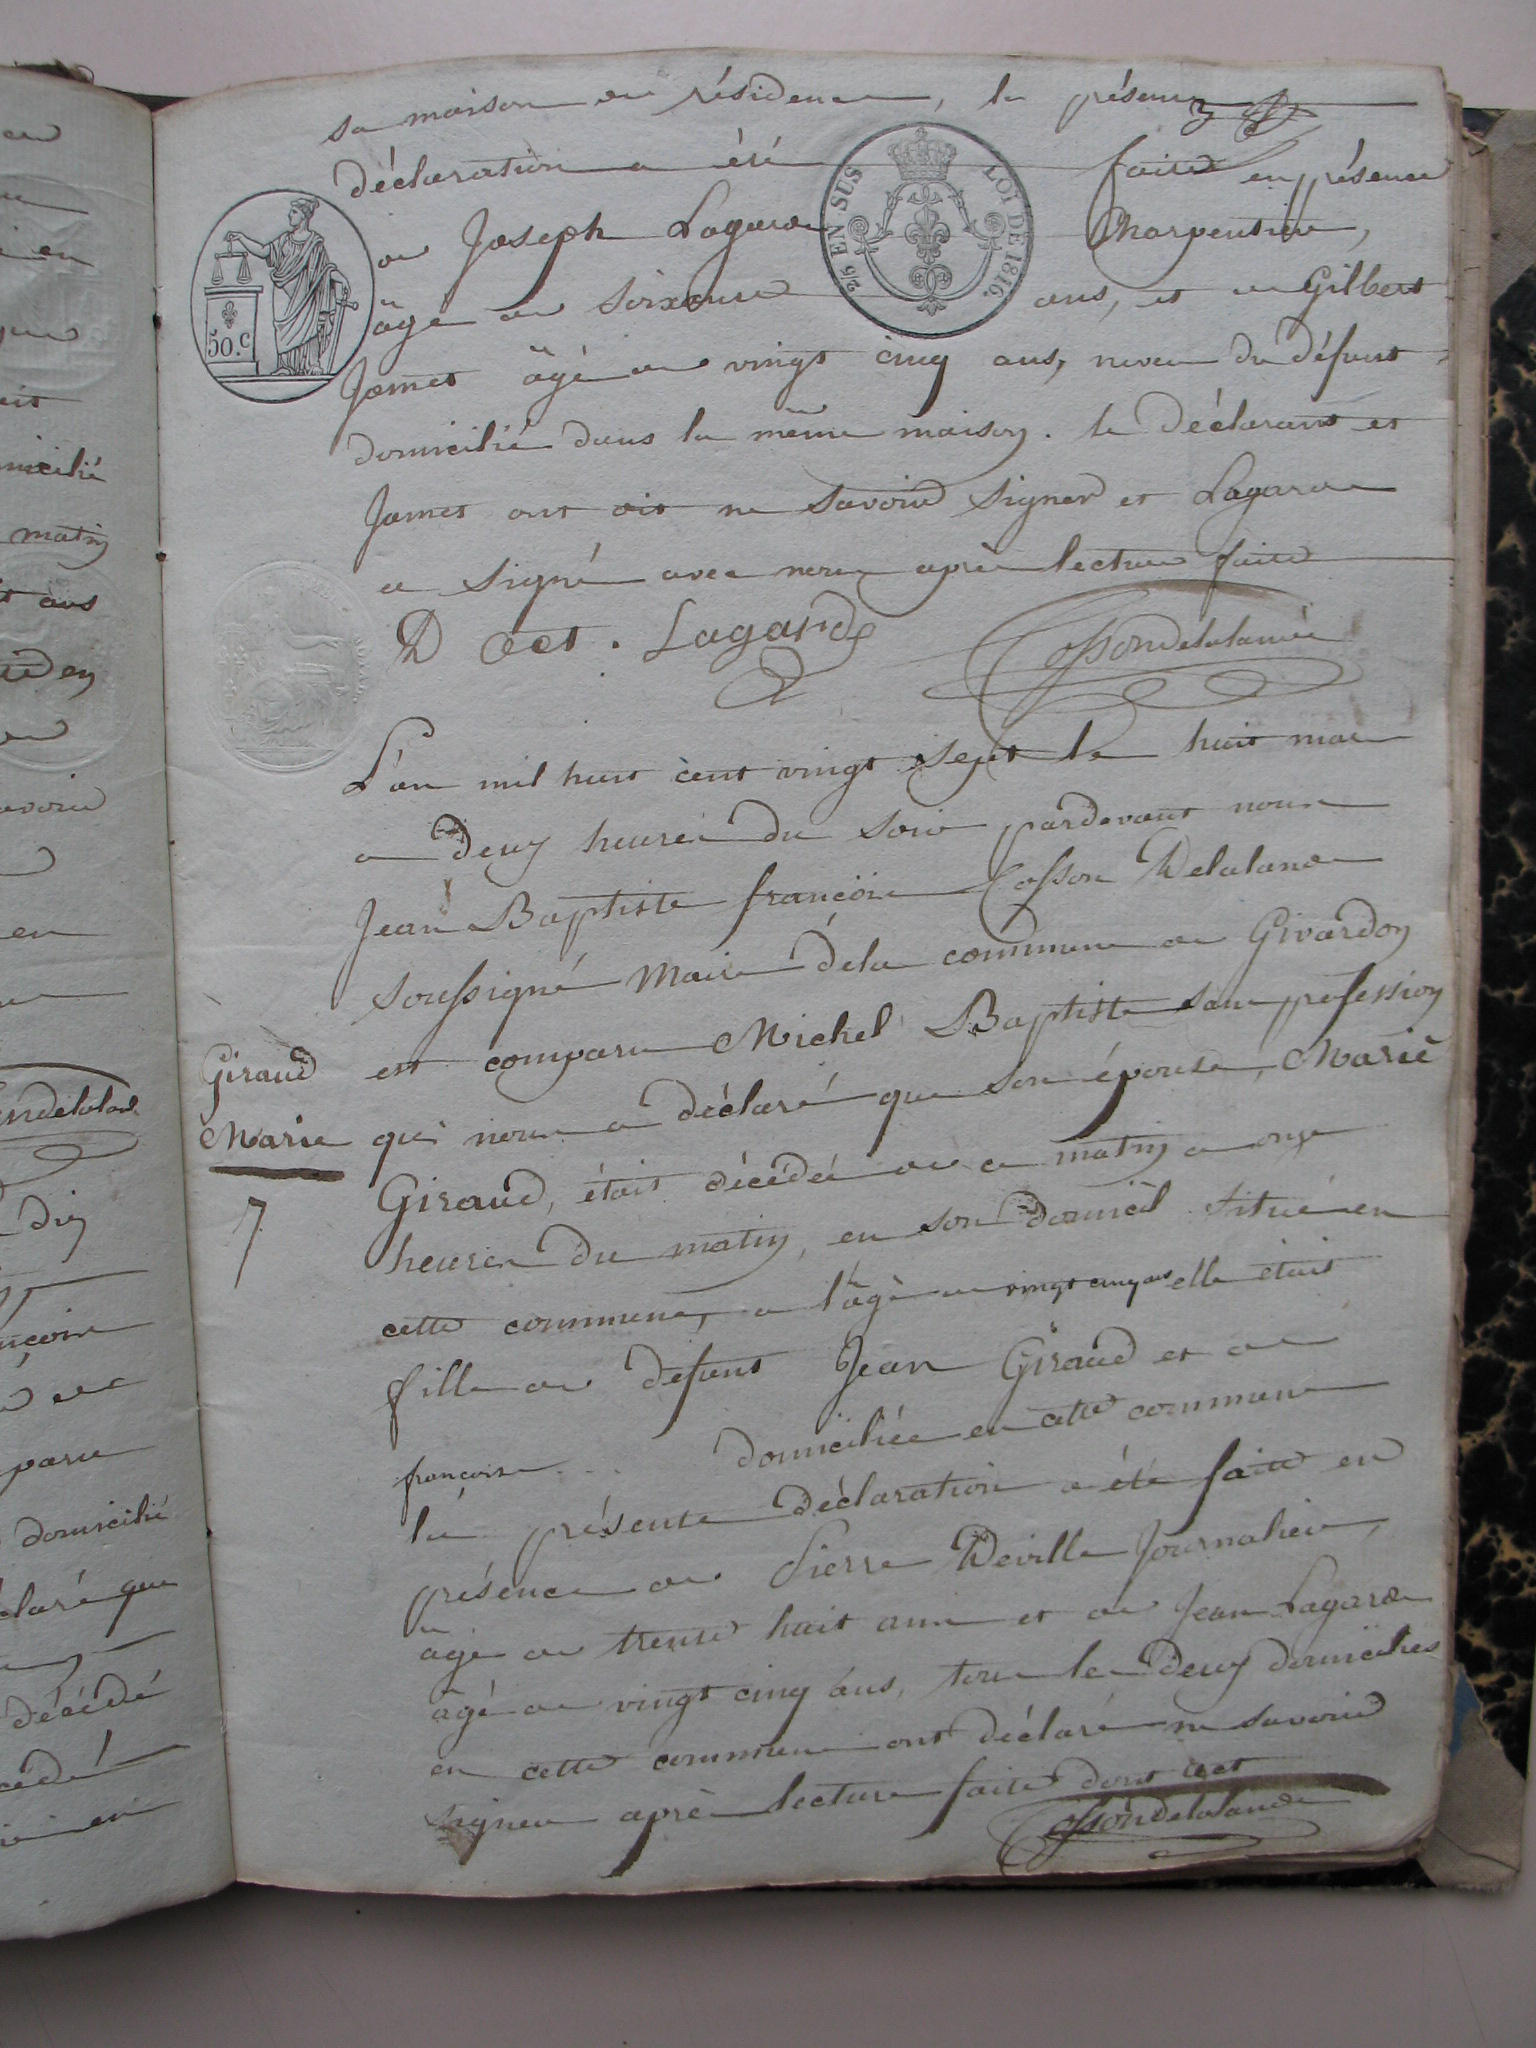 sa maison de résidence, la présente
déclaration a été faite en présence
de Joseph Lagarde Charpentier,
âgé de soixante ans, et de Gilbert
Jamet âgé de vingt cinq ans, neveu du défunt
domicilié dans la même maison. le déclarant et
Jamet ont dit ne savoir signer et Lagarde
a signé avec nous après lecture faite
D act. Lagarde Cossondelalande
L'an mil huit cent vingt sept le huit mai
a deux heures du soir pardevant nous
Jean Baptiste françois Cosson Delalande
soussigné Maire dela commune de Givardon
Giraud
Marie
7
est comparu Michel Baptiste sans profession
qui nous a déclaré que son épouse, Marie
Giraud, était décédée de ce matin a onze
heures du matin, en son domicil situé en
cette commune, a l'âge de vingt cinq ans elle était
fille de defunt Jean Giraud et de
françoise ... domiciliée en cette commune
la présente déclaration a été faite en
présence de Pierre Deville Journalier,
âgé de trente huit ans et de Jean Lagarde
âgé de vingt cinq ans, tous les deux domiciliés
en cette commune ont déclaré ne savoir
signer après lecture faite dont act
Cossondelalande
50.c
2/5 EN SUS LOI DE 1816.